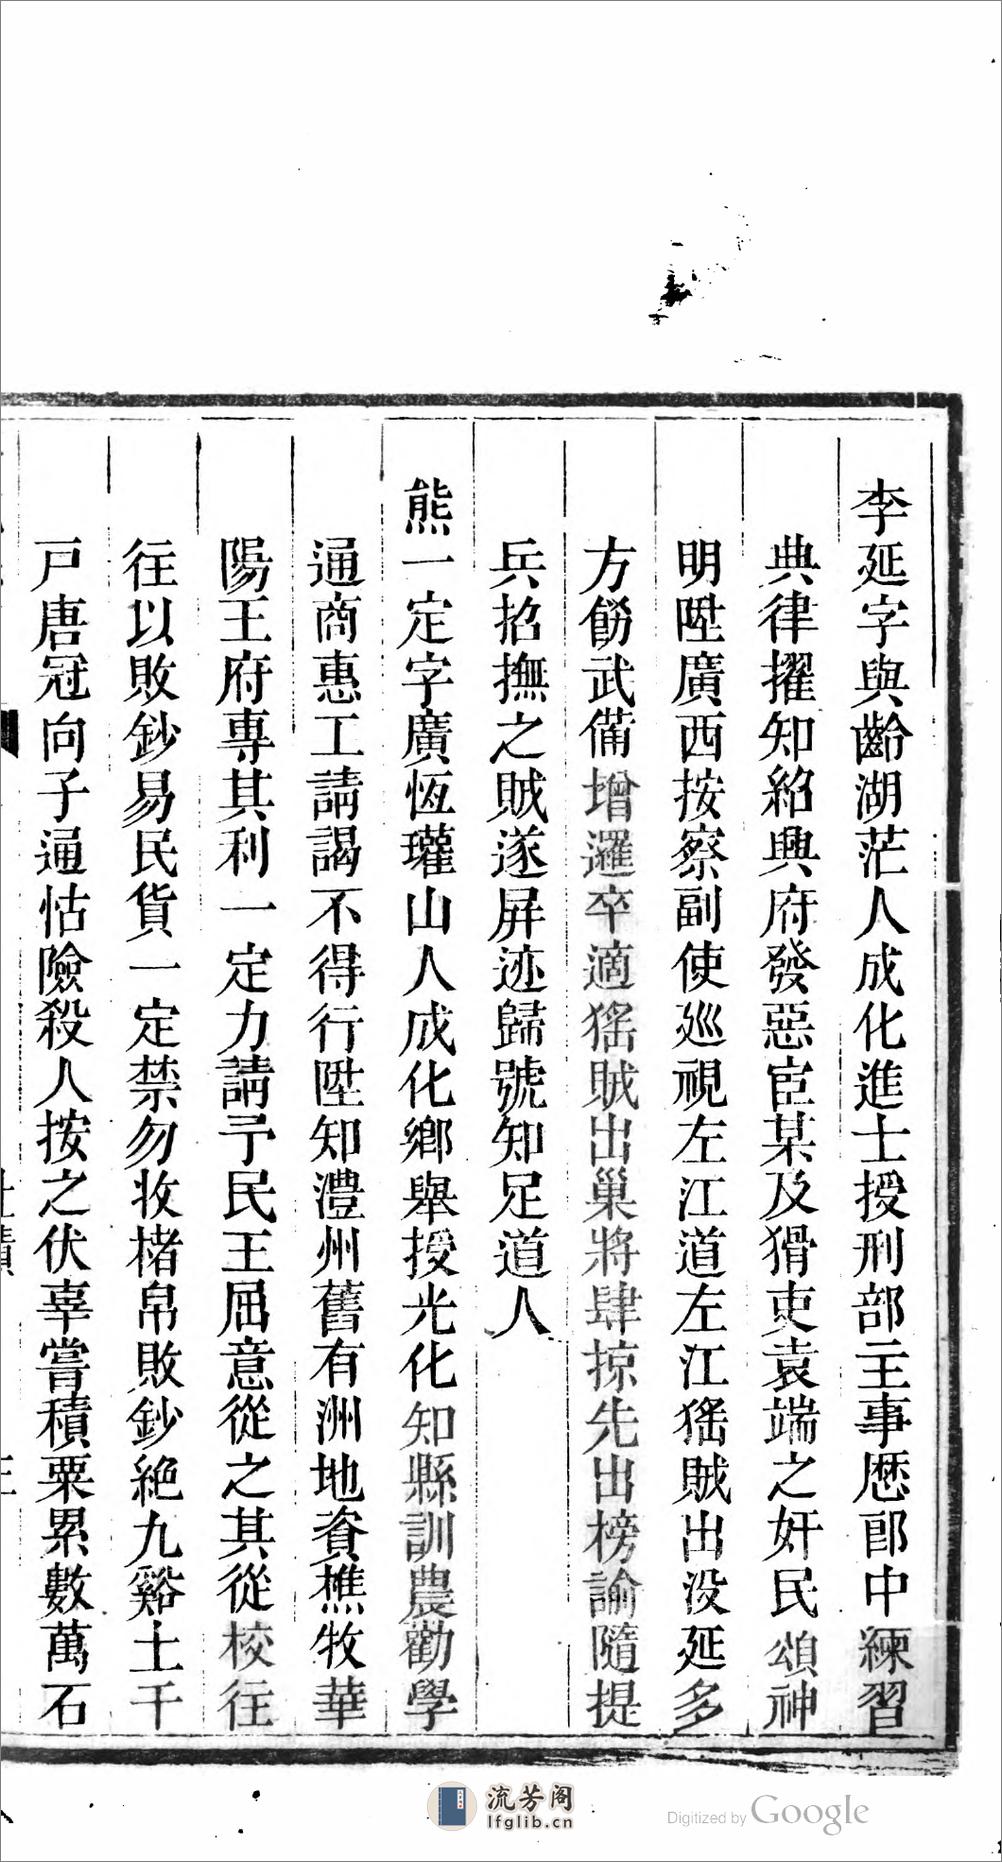 李延字與齡湖茫人成化進士授刑部主事歷郎中練習
典律擢知紹興府發惡宦某及猾吏袁端之奸民頌神
明陞廣西按察副使廵視左江道左江猺賊出没延多
方飭武備增邏卒適猺賊出巢將肆掠先出榜諭隨提
兵招撫之賊遂屏迹歸號知足道人
熊一定字廣恆瓘山人成化鄉舉授光化知縣訓農勸學
通商惠工請謁不得行陞知澧州舊有洲地資樵牧華
陽王府專其利一定力請予民王屈意從之其從校往
往以敗鈔易民貨一定禁勿收楮帛敗鈔絶九谿土千
戸唐冠向子通怙險殺人按之伏辜嘗積粟累數萬石
流芳阁
lfglib.cn
Digitized by Google